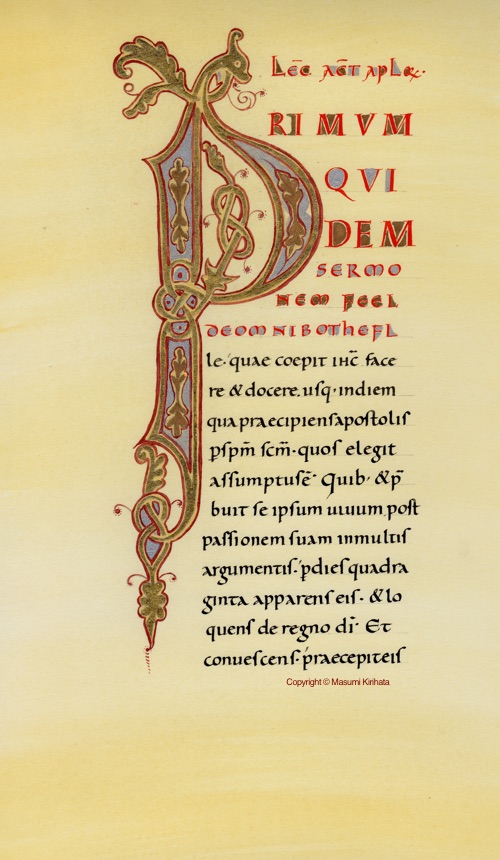 Lēc āct apl
PRIMVM
QVI
DEM
SERMO
NEM FECI
DEOMNIBOTHEFI
le· quae coepit ihc̄ face
re & docere. usq· indiem
qua praecipiens apostolis
p sp̄m sc̄m· quos elegit
assumptus ē· Quib· & p̄
buit se ipsum uiuum post
passionem suam inmultis
argumentis· p dies quadra
ginta apparens eis· & lo
quens de regno dī· Et
conuescens· praecepit eis
Copyright © Masumi Kirihata